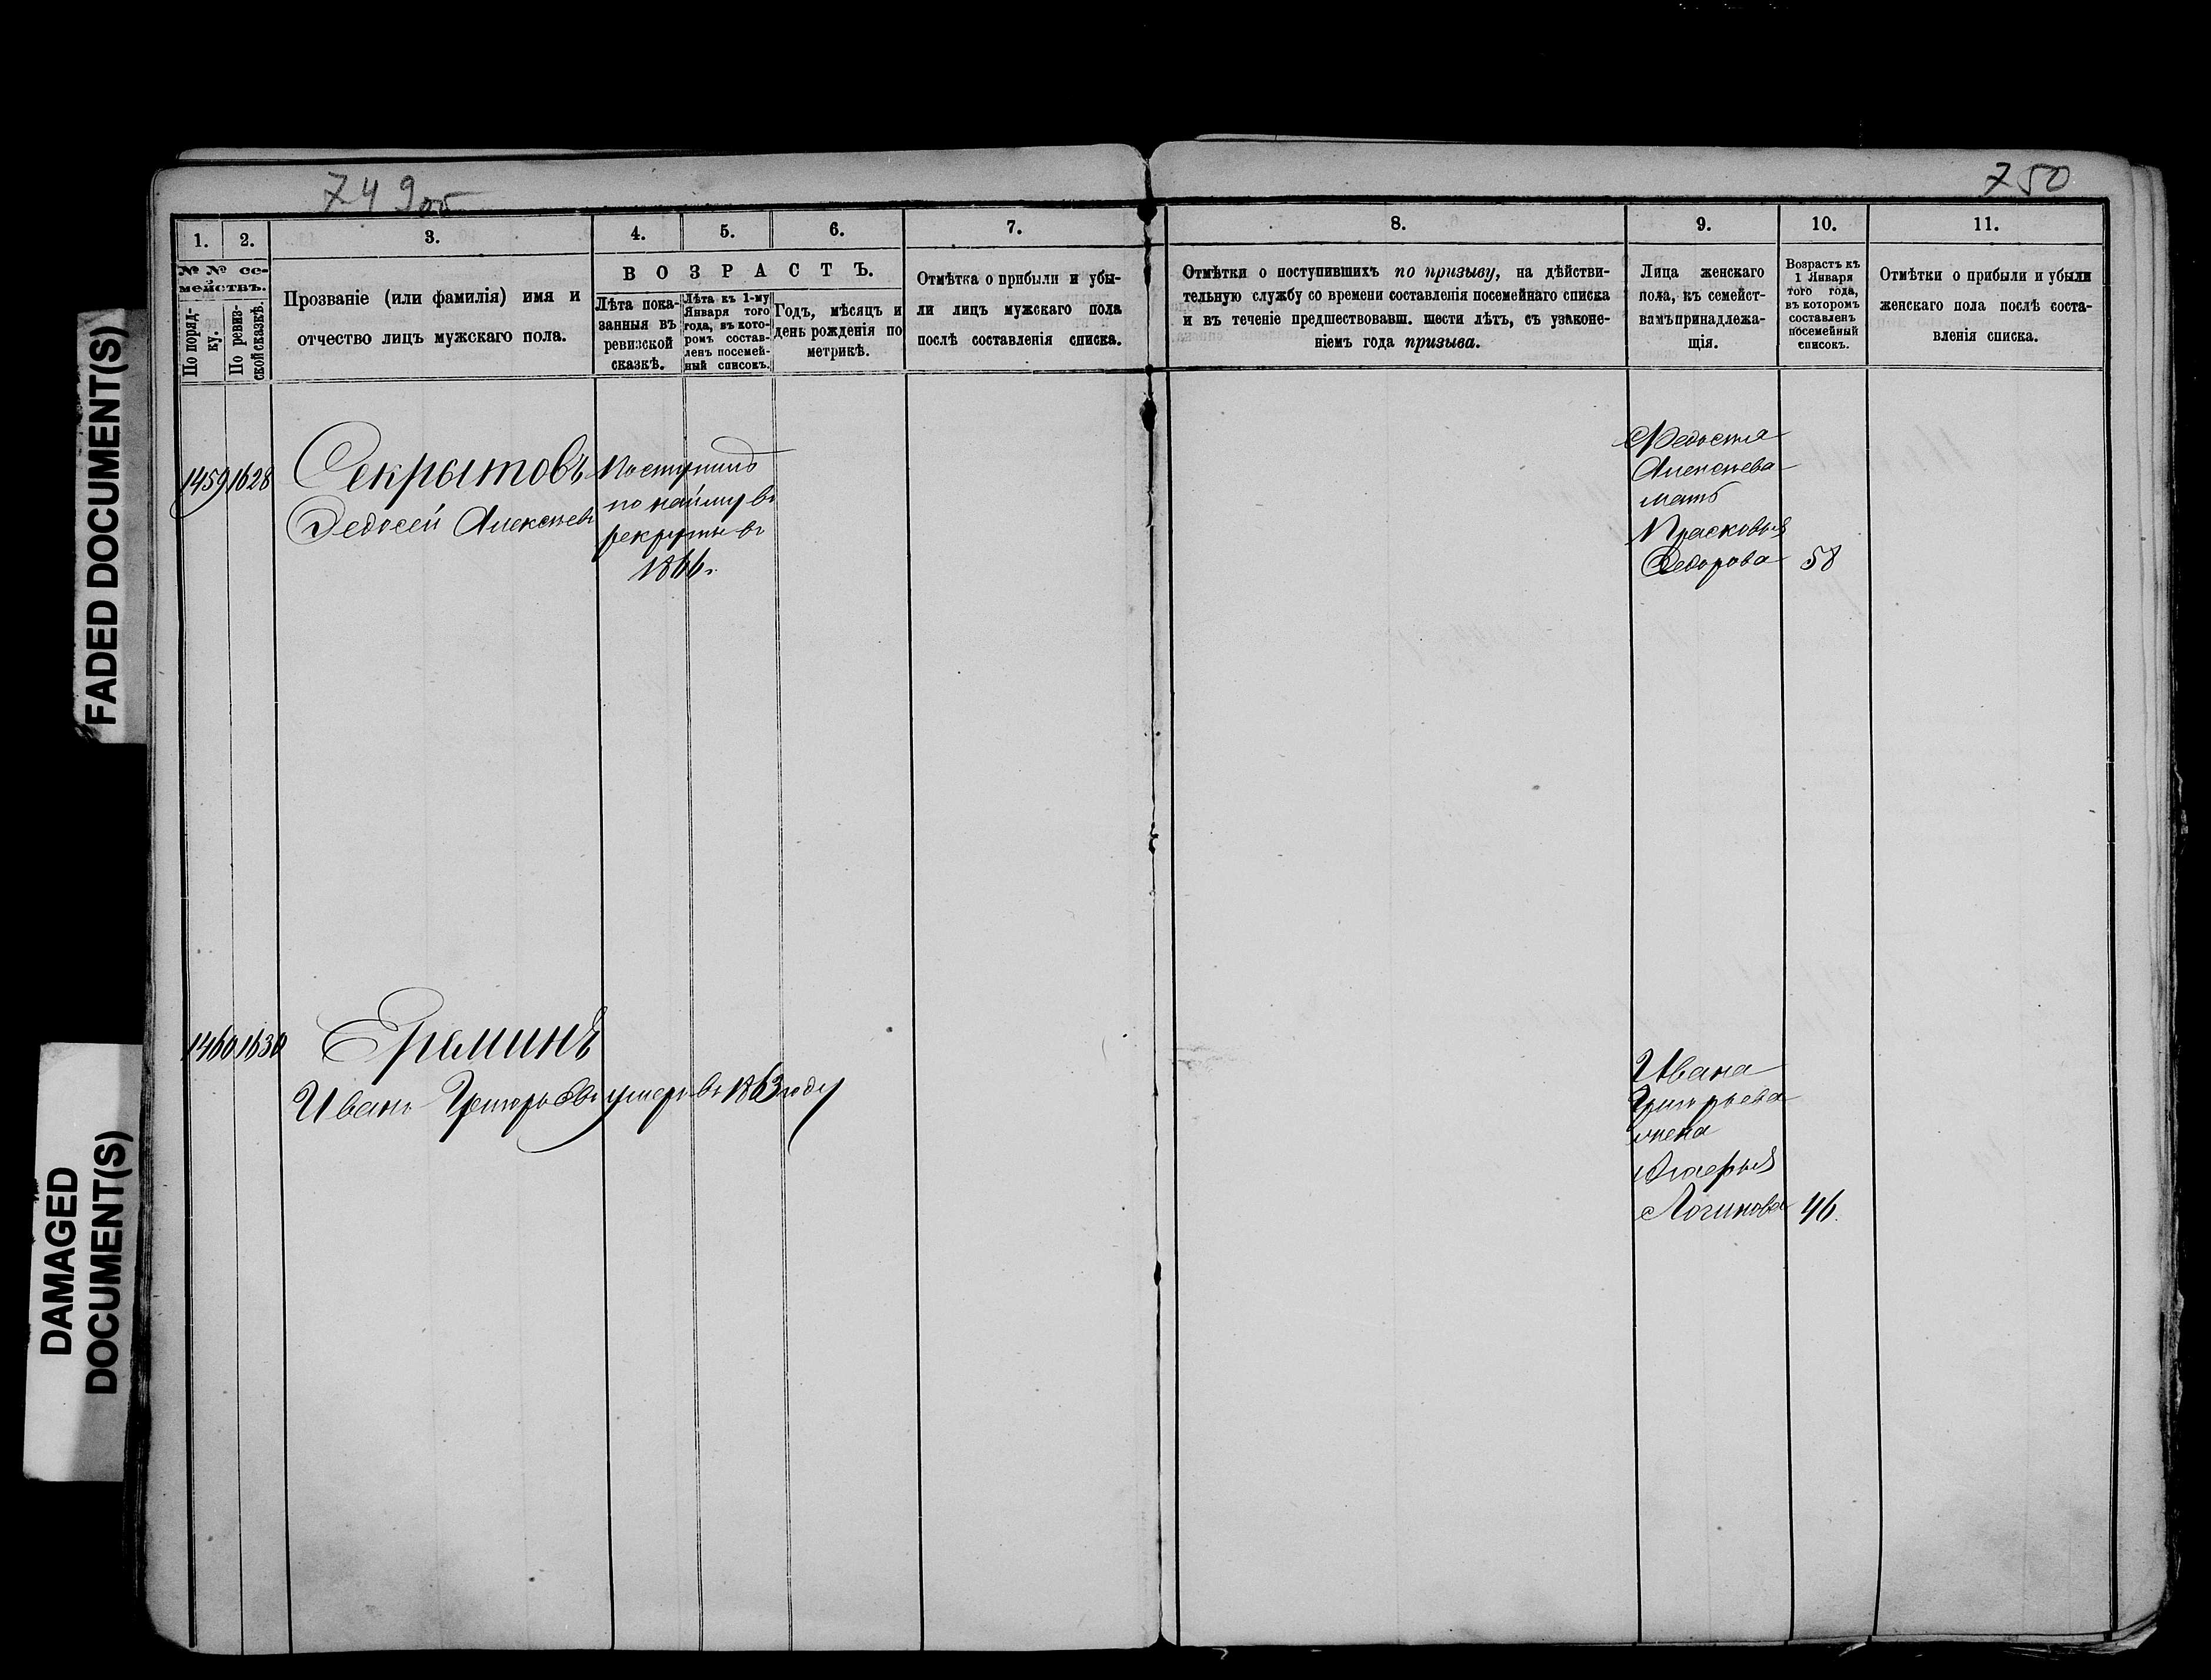 749об
750
1.
2.
3.
4.
5.
6.
7.
8.
9.
10.
11.
№ № се-
мействъ.
По поряд-
ку.
По ревиз-
ской сказкѣ.
Прозваніе (или фамилія) имя и
отчество лицъ мужскаго пола.
ВОЗРАСТЪ.
Лѣта пока-
занныя въ
ревизской
сказкѣ.
Лѣта къ 1-му
Января того
года, въ кото-
ромъ состав-
ленъ посемей-
ный списокъ.
Годъ, мѣсяцъ и
день рожденія по
метрикѣ.
Отмѣтка о прибыли и убы-
ли лицъ мужскаго пола
послѣ составленія списка.
Отмѣтки о поступившихъ по призыву, на дѣйстви-
тельную службу со времени составленія посемейнаго списка
и въ теченіе предшествовавш. шести лѣтъ, съ узаконе-
ніемъ года призыва.
Лица женскаго
пола, къ семейст-
вамъ принадлежа-
щія.
Возрастъ къ
1 Января
того года,
въ которомъ
составленъ
посемейный
списокъ.
Отмѣтки о прибыли и убыли
женскаго пола послѣ соста-
вленія списка.
1459 1628 Секрытовъ
Федосей Алексѣевъ
Поступилъ
по найму въ
рекруты въ
1866г.
Федосѣя
Алексѣева
мать
Прасковья
Федорова 58
1460 1630 Ереминъ
Иванъ Григорьевъ умеръ въ 1863 году
Ивана
Григорьева
жена
Логинова 46.
FADED DOCUMENT(S)
DAMAGED
DOCUMENT(S)